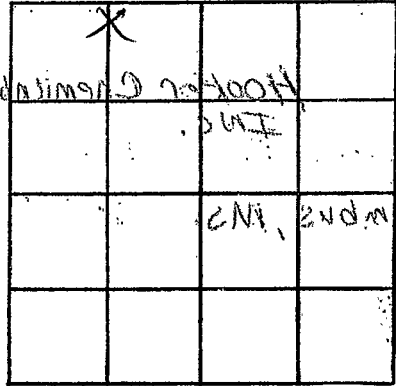 X
Hooker Chemical
INC.
mbus, MS